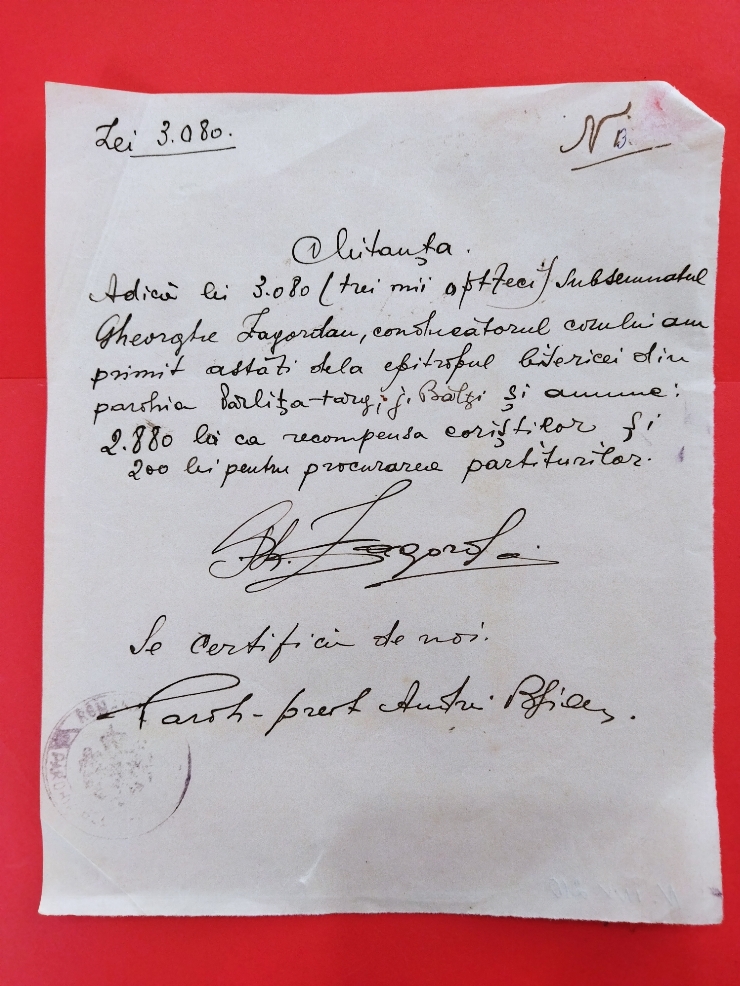 Lei 3.080.
N 13.
Chitanța.
Adică lei 3.080 (trei mii optzeci) Subsemnatul
Gheorghe Zagordan, conducătorul corului am
primit astăti dela epitropul bisericei din
parohia Pârlița-targ, j. Bălți și anume:
2.880 lei ca recompensa coriștilor și
200 lei pentru procurarea partiturilor.
Gh. Zagorda
Se certifică de noi.
Paroh-preot Andrei
ROMÂ
PAROH